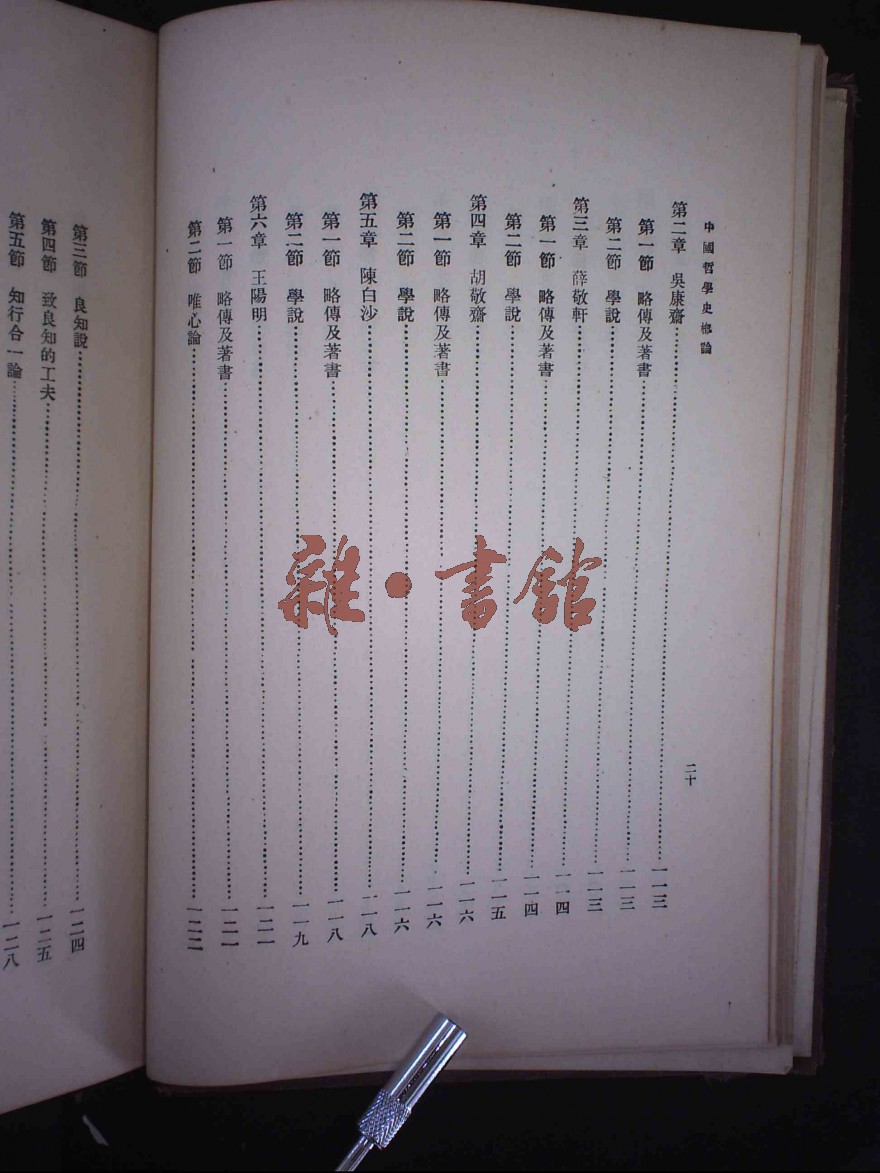 中國哲學史槪論
二十
第二章 吳康齋……一一三
第一節 略傳及著書……一一三
第二節 學說……一一三
第三章 薛敬軒……一一四
第一節 略傳及著書……一一四
第二節 學說……一一五
第四章 胡敬齋……一一六
第一節 略傳及著書……一一六
第二節 學說……一一六
第五章 陳白沙……一一八
第一節 略傳及著書……一一八
第二節 學說……一一九
第六章 王陽明……一二一
第一節 略傳及著書……一二一
第二節 唯心論……一二二
第三節 良知說……一二四
第四節 致良知的工夫……一二五
第五節 知行合一論……一二八
雜·書館